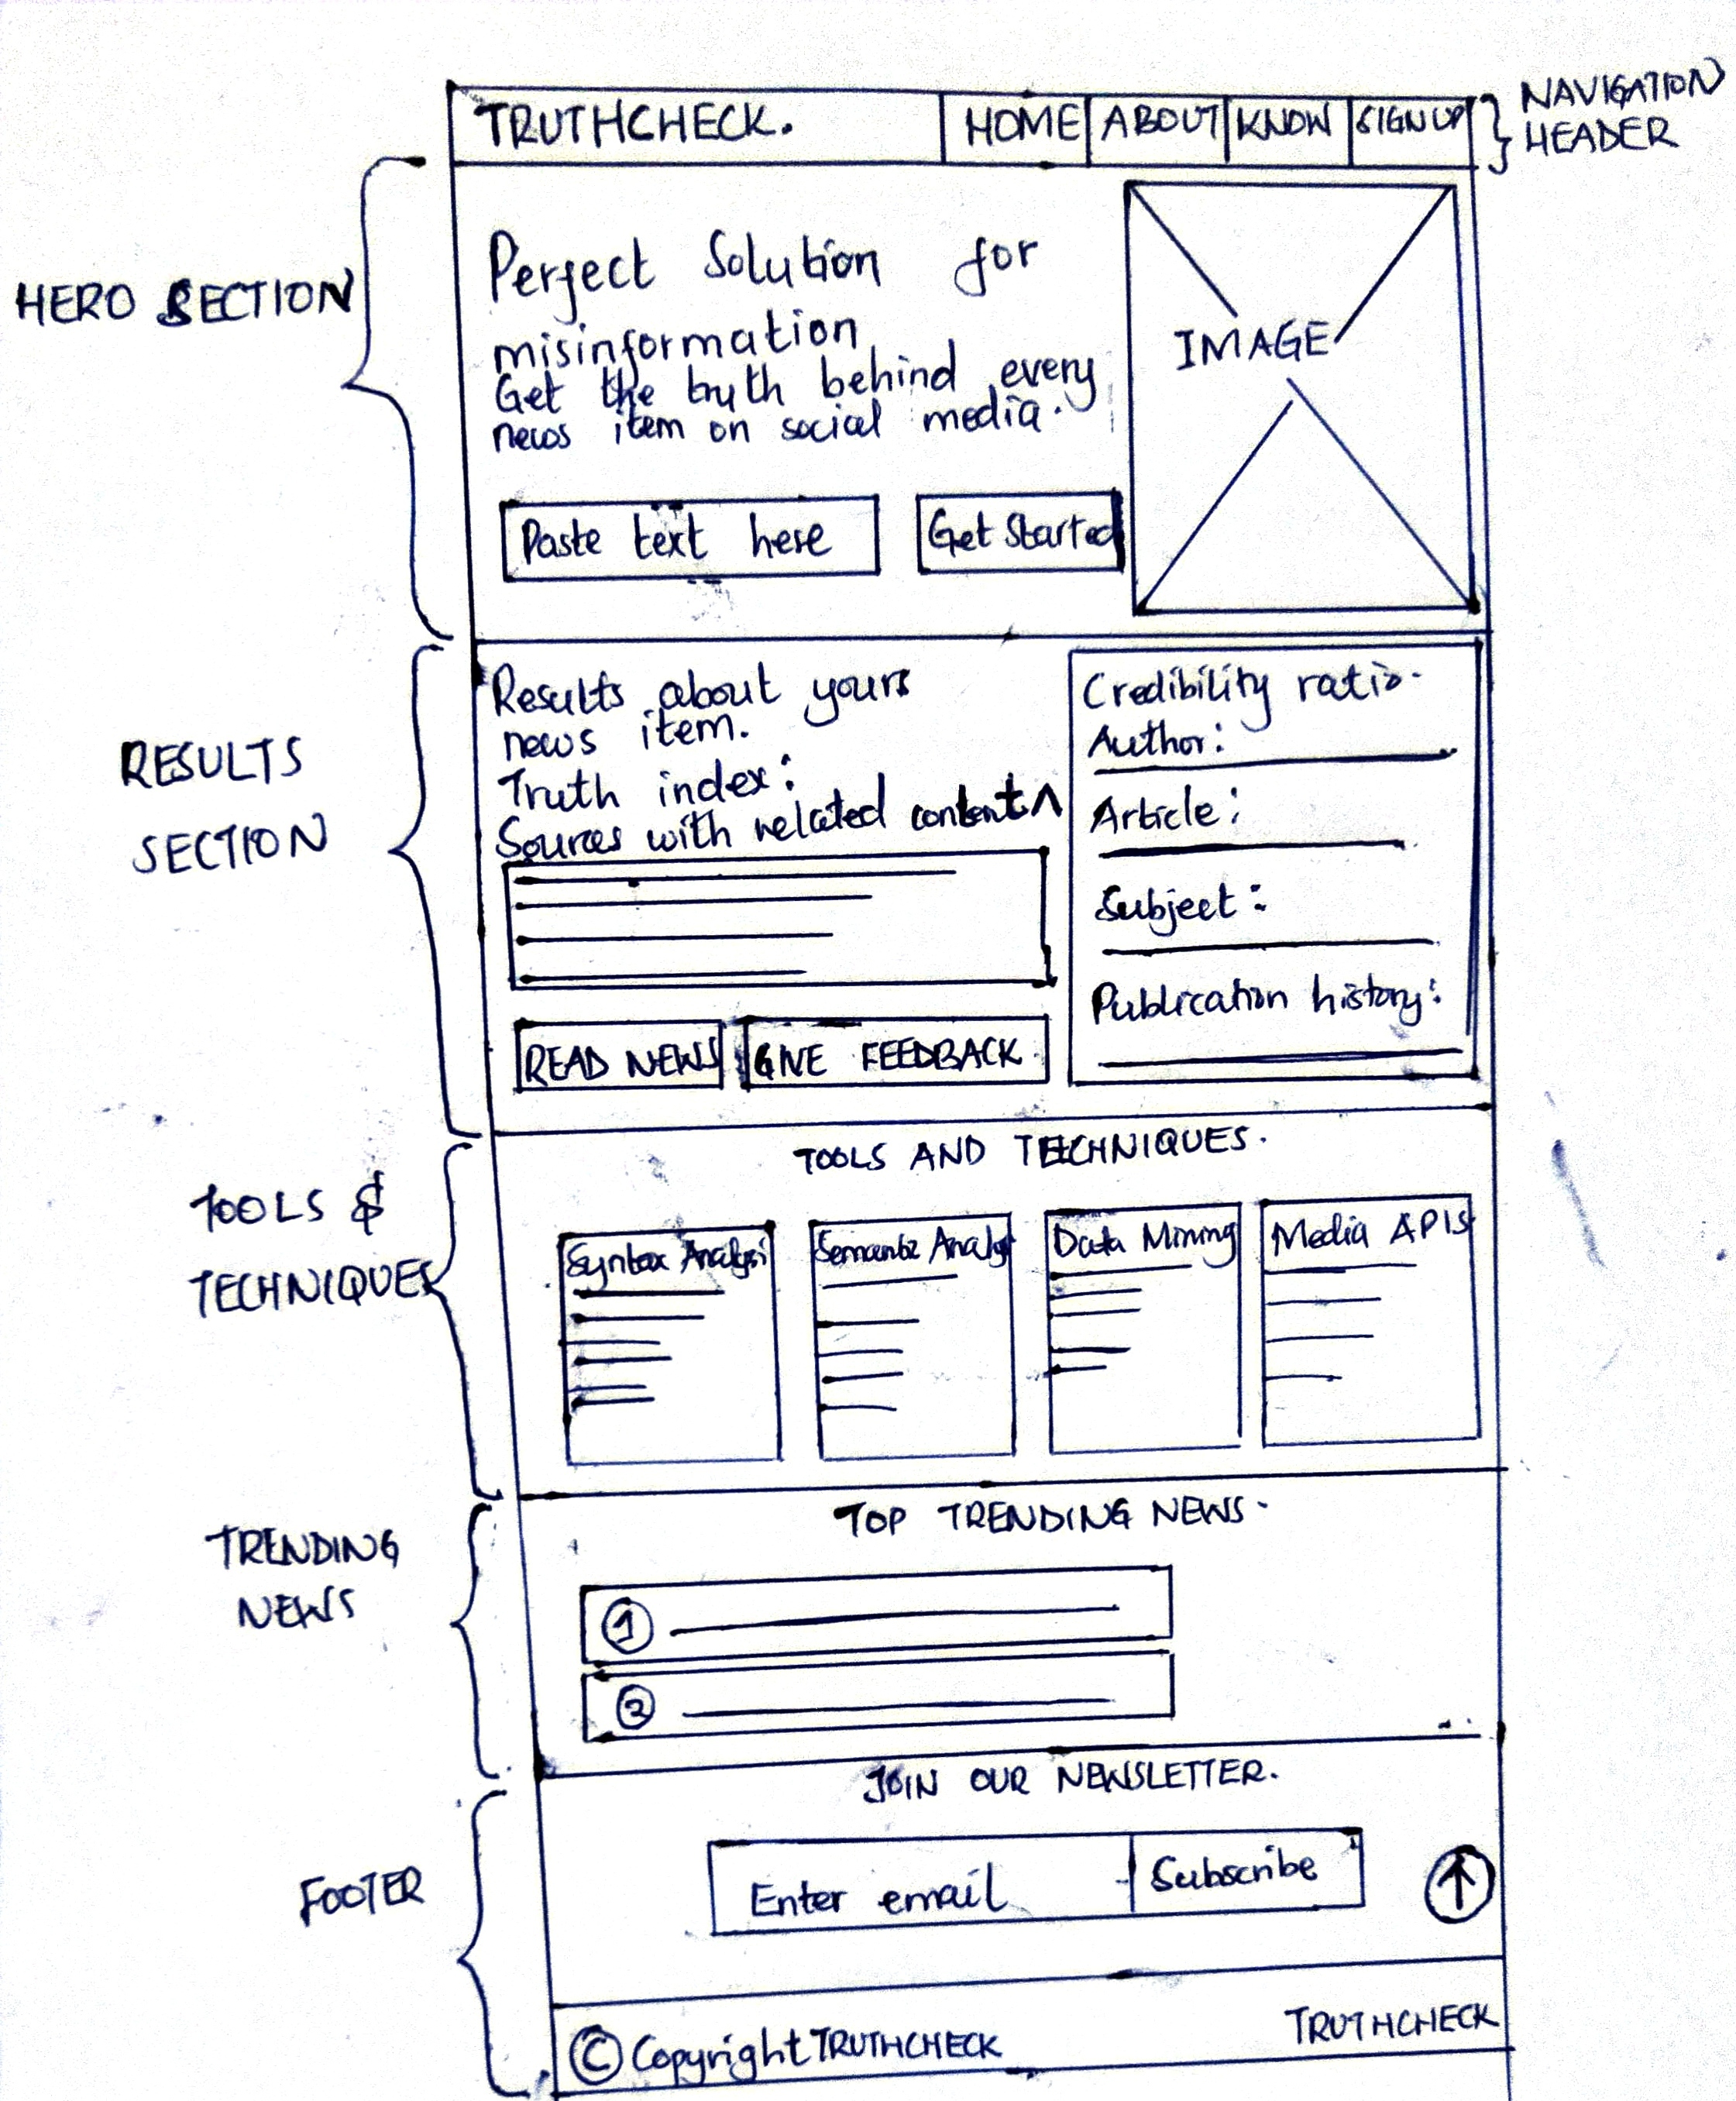 TRUTHCHECK. HOME ABOUT KNOW SIGNUP
NAVIGATION
HEADER
HERO SECTION
Perfect Solution for
misinformation
Get the truth behind every
news item on social media.
IMAGE
Paste text here
Get Started
RESULTS
SECTION
Results about yours
news item.
Truth index:
Sources with related content ^
READ NEWS
GIVE FEEDBACK
Credibility ratio.
Author:
Article:
Subject:
Publication history:
TOOLS &
TECHNIQUES
TOOLS AND TECHNIQUES.
Syntax Analysi
Semantic Analys
Data Mining
Media APIS
TRENDING
NEWS
TOP TRENDING NEWS-
1
2
FOOTER
JOIN OUR NEWSLETTER.
Enter email
Subscribe
↑
© Copyright TRUTHCHECK
TRUTHCHECK